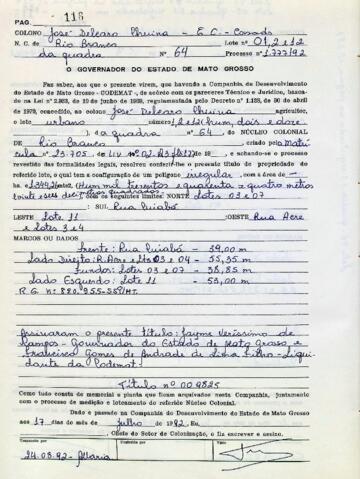 PAG. 116
COLONO José Delcaro Pluina - E.C. - Casado
N. C. de Rio Branco Lote nº 01, 2 e 12
da quadra Nº 64 Processo nº 1.777/92
O GOVERNADOR DO ESTADO DE MATO GROSSO
Faz saber, aos que o presente virem, que havendo a Companhia de Desenvolvimento
do Estado de Mato Grosso - CODEMAT -, de acôrdo com os pareceres Técnico e Jurídico, baseados
na Lei nº de junho de regulamentada pelo Decreto nº 1.138, de 30 de abril
de concedido ao colono José Delcaro Pluina agricultor,
o lote urbano 1, 2 e 12 (hum, dois e doze
), da quadra nº 64, do NÚCLEO COLONIAL
de Rio Branco, criado pela Matrí
cula nº 23.705 e achando-se o processo
revestido das formalidades legais, resolveu conferir-lhe o presente título de propriedade
referido lote, o qual tem a configuração de um polígono irregular, com a área de
(Hum mil trezentos e quarenta e quatro metros
quadrados) com os seguintes limites: NORTE Lotes 03 e 07
SUL Rua Cuiabá
LESTE Lote 11 OESTE Rua Acre
e Lotes 3 e 4
MARCOS OU DADOS
Frente: Rua Cuiabá - 39,00 m
Lado Direito: R. Acre e Lts 03 e 04 - 55,35 m
Fundos: Lotes 03 e 07 - 38,85 m
Lado Esquerdo: Lote 11 - 55,00 m
R.G. nº 880.955-SSP/MT.
Assinaram o presente título: Jayme Veríssimo de
Campos - Governador do Estado de Mato Grosso e
Francisco Gomes de Andrade de Lima Filho - Liqui
dante da Codemat.
Título nº 009825
Como tudo consta de memorial e planta que ficam arquivados nesta Companhia, juntamente
com o processo de medição e loteamento do referido Núcleo Colonial.
Dado e passado na Companhia de Desenvolvimento do Estado de Mato Grosso
aos 17 dias do mês de julho de 1992. Eu,
, Chefe do Setor de Colonização, o fiz escrever e assino.
Visto
24.08.92 - Maria